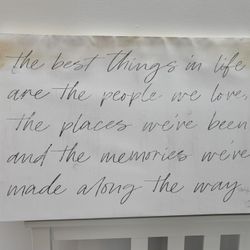 the best things in life
are the people we love,
the places we've been
and the memories we've
made along the way...